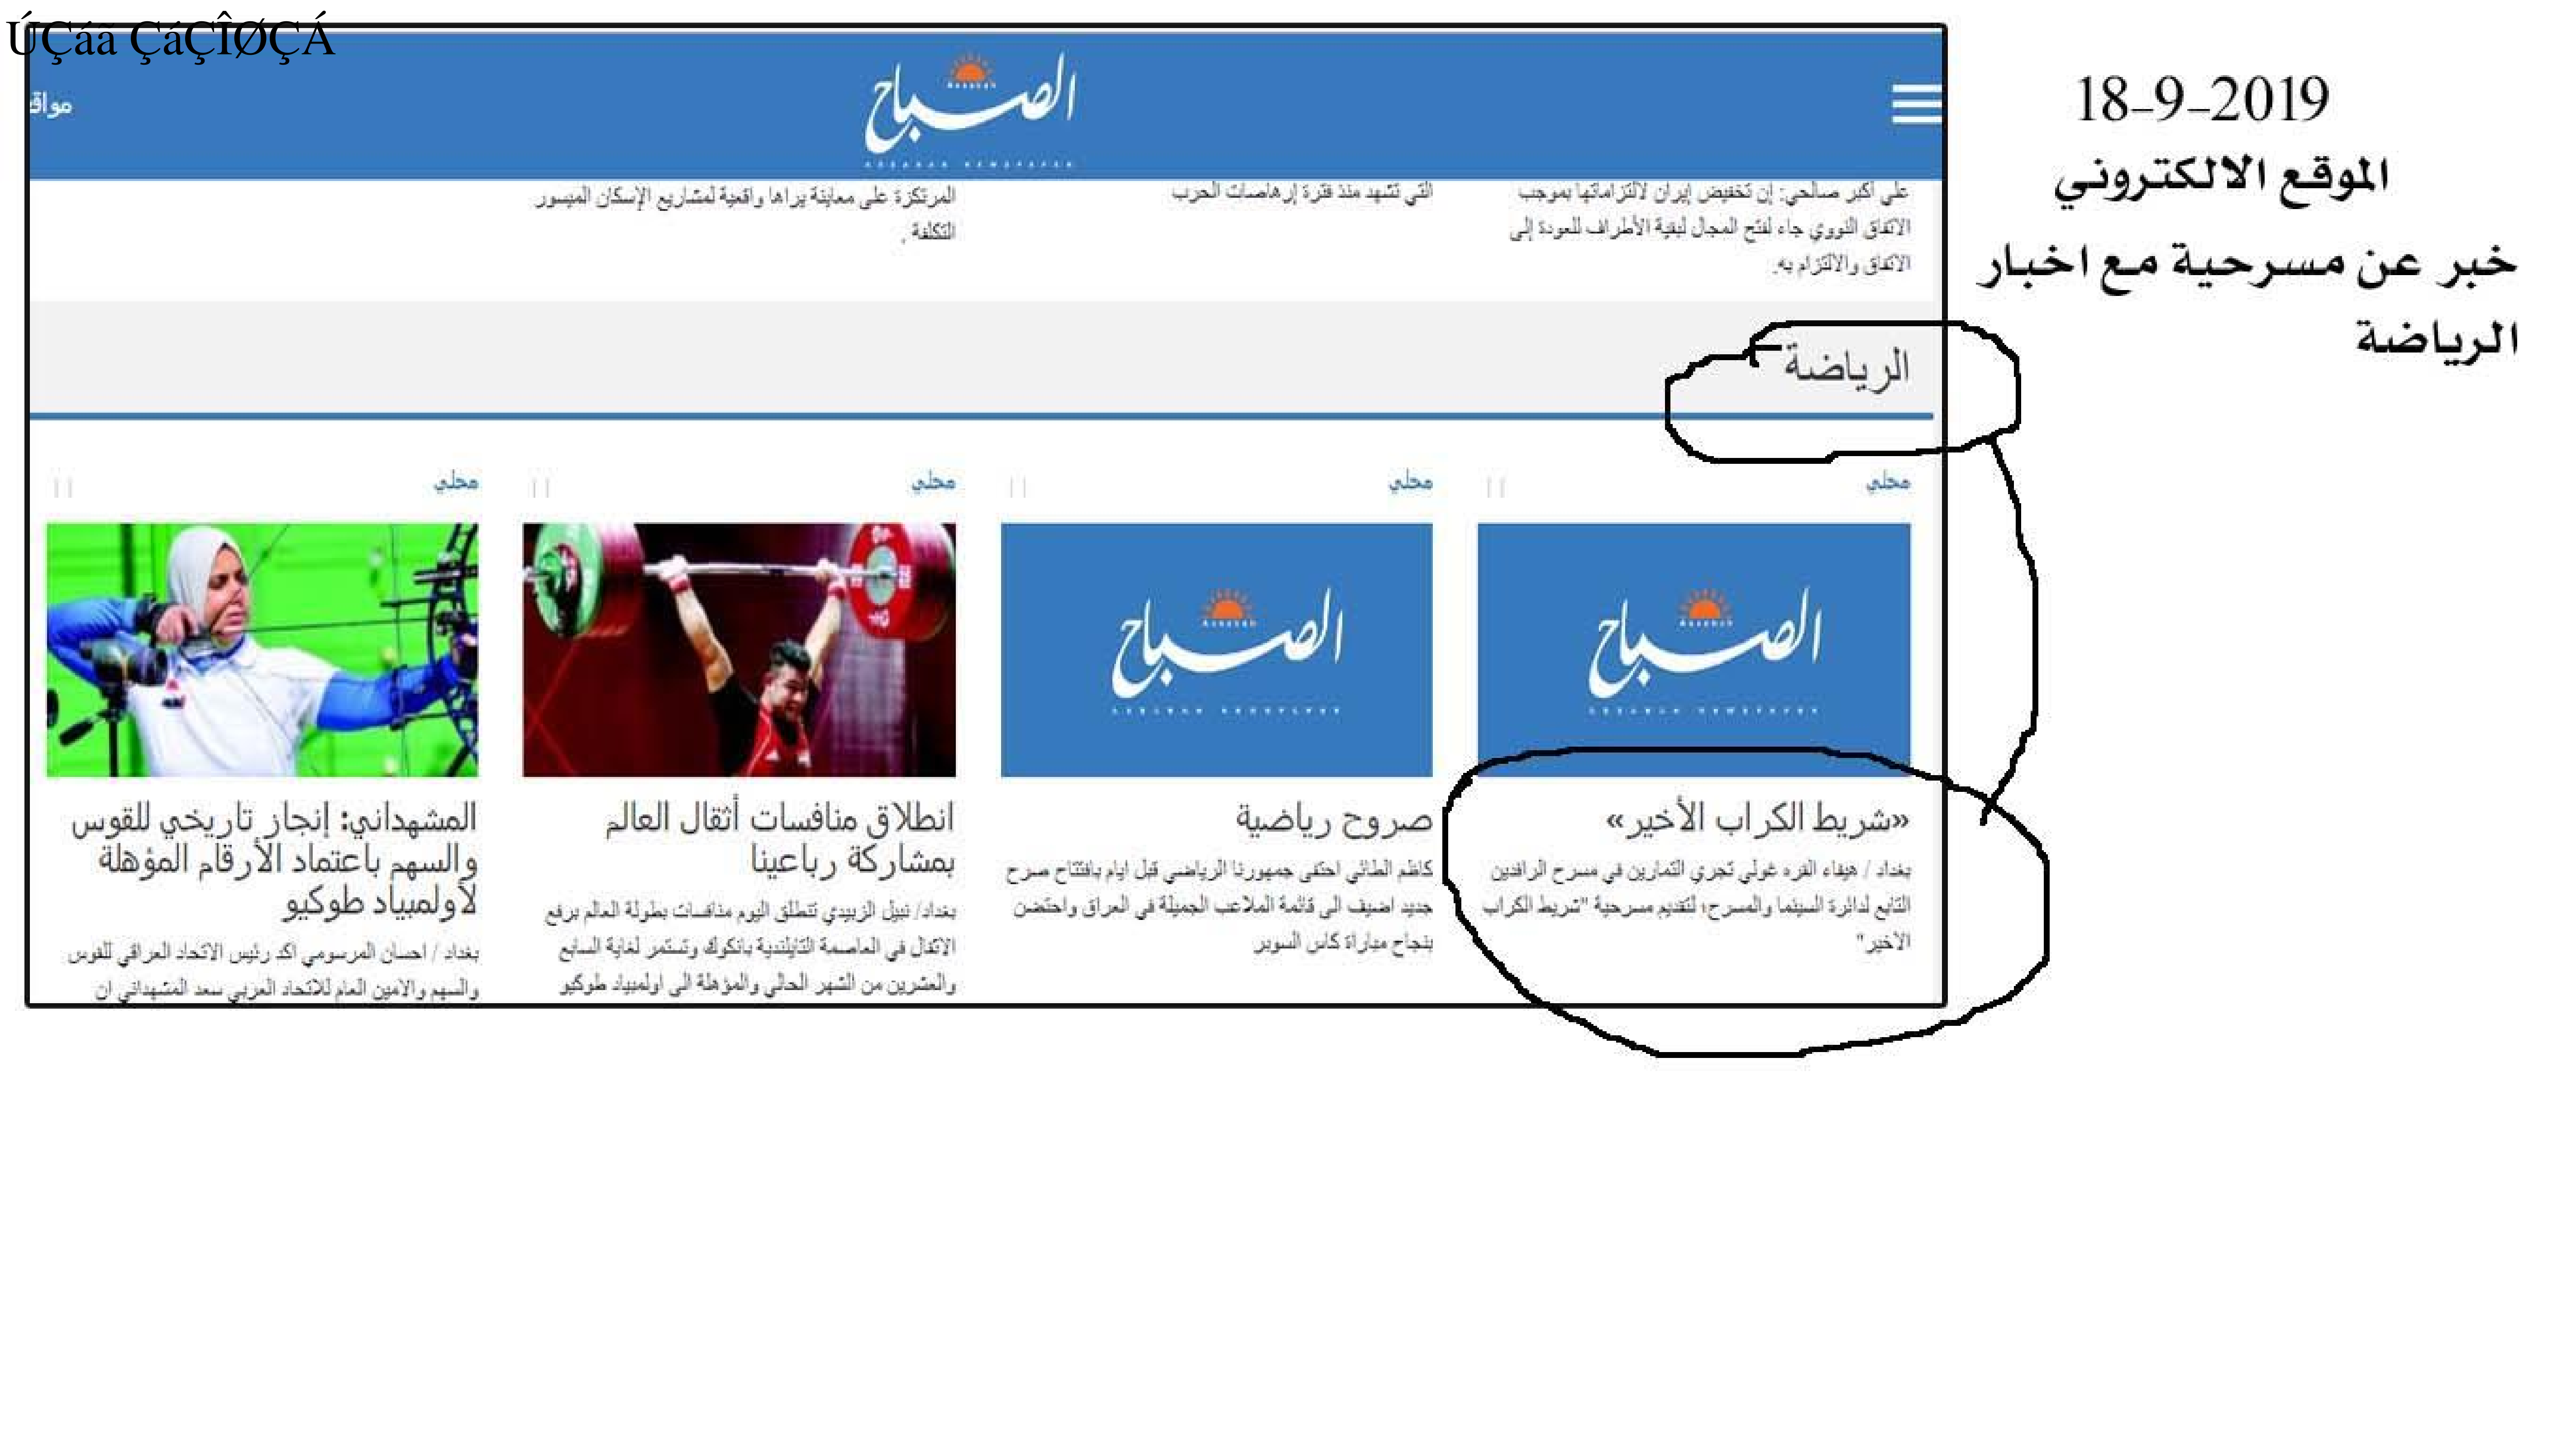 ÚÇáã ÇáÇÎØÇÁ
18-9-2019
الموقع الالكتروني
خبر عن مسرحية مع اخبار
الرياضة
الصباح
مواق
على أكبر صالحي: إن تخفيض إيران لالتزاماتها بموجب
الاتفاق النووي جاء لفتح المجال لبقية الأطراف للعودة إلى
الاتفاق والالتزام به.
التي تشهد منذ فترة إرهاصات الحرب
المرتكزة على معاينة يراها واقعية لمشاريع الإسكان الميسور
التكلفة .
الرياضة
محلي
الصباح
«شريط الكراب الأخير»
بغداد / هيفاء القره غولي تجري التمارين في مسرح الرافدين
التابع لدائرة السينما والمسرح؛ لتقديم مسرحية "شريط الكراب
الاخير"
محلي
الصباح
صروح رياضية
كاظم الطائي احتفى جمهورنا الرياضي قبل ايام بافتتاح صرح
جديد اضيف الى قائمة الملاعب الجميلة في العراق واحتضن
بنجاح مباراة كاس السوبر
محلي
انطلاق منافسات أثقال العالم
بمشاركة رباعينا
بغداد/ نبيل الزبيدي تنطلق اليوم منافسات بطولة العالم برفع
الاثقال في العاصمة التايلندية بانكوك وتستمر لغاية السابع
والعشرين من الشهر الحالي والمؤهلة الى اولمبياد طوكيو
محلي
المشهداني: إنجاز تاريخي للقوس
والسهم باعتماد الأرقام المؤهلة
لأولمبياد طوكيو
بغداد / احسان المرسومي اكد رئيس الاتحاد العراقي للقوس
والسهم والامين العام للاتحاد العربي سعد المشهداني ان